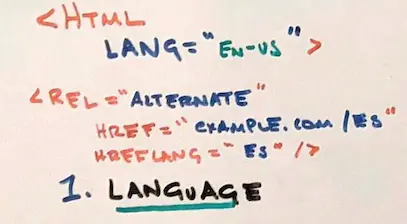 <HTML
LANG="EN-US">
<REL="ALTERNATE"
HREF="EXAMPLE.COM/ES"
HREFLANG="ES"/>
1. LANGUAGE